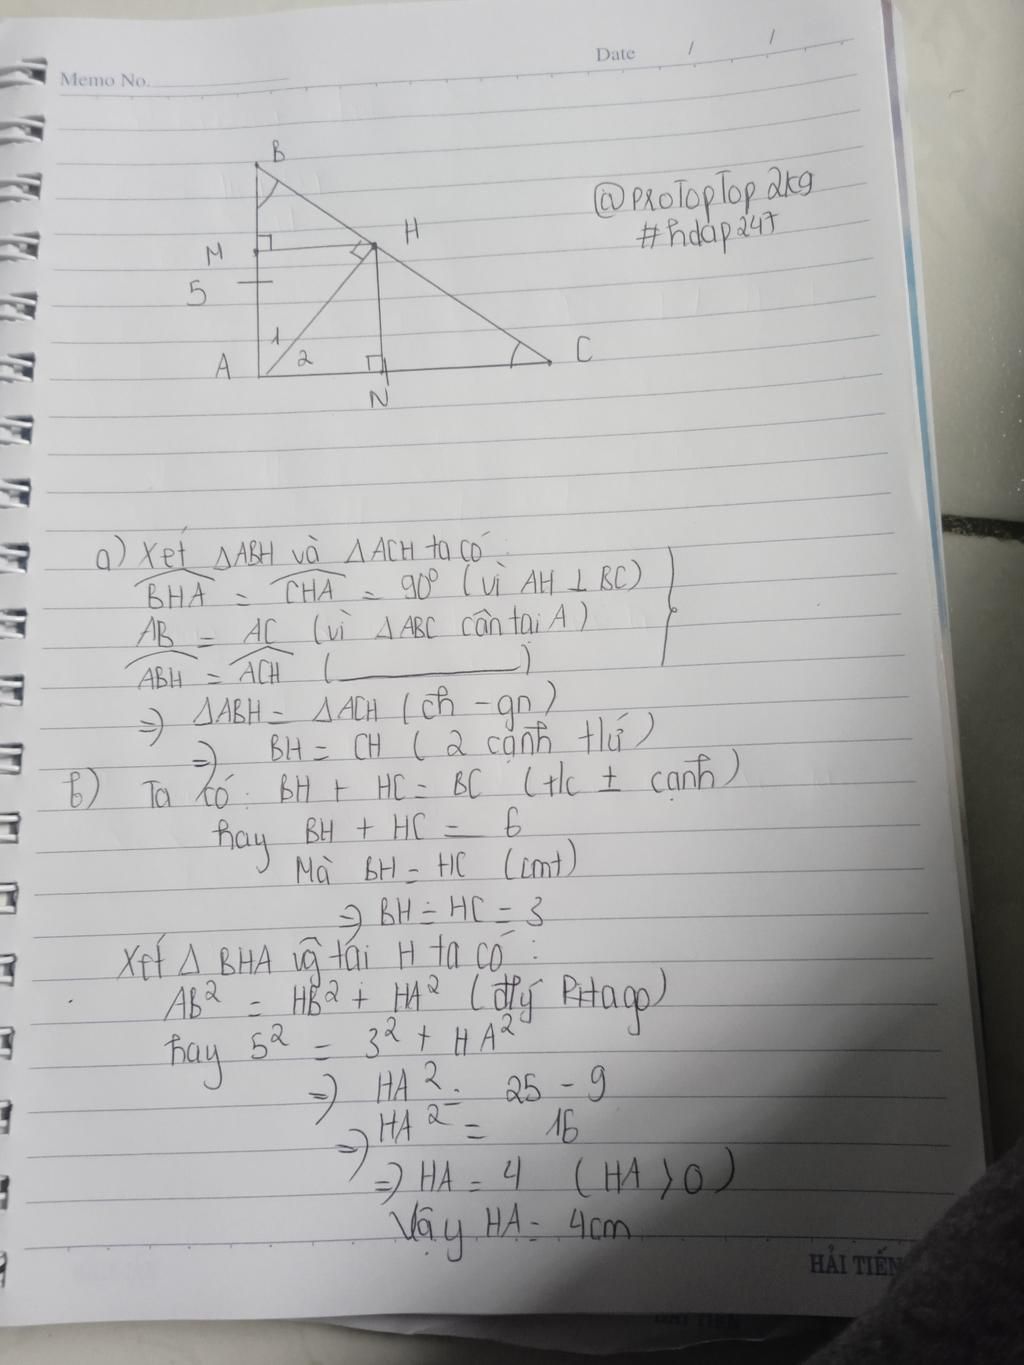 Memo No.
Date / /
B
@proTopTop2kg
#hdap247
H
M
5
1
2
A
C
N
a) Xét ΔABH và ΔACH ta có:
BHA = CHA = 90° (vì AH ⊥ BC)
AB = AC (vì ΔABC cân tại A)
ABH = ACH ( )
⇒ ΔABH = ΔACH (ch - gn)
⇒ BH = CH (2 cạnh tứ)
b) Ta có: BH + HC = BC (t/c ± cạnh)
hay BH + HC = 6
Mà BH = HC (cmt)
⇒ BH = HC = 3
Xét Δ BHA vg tại H ta có:
AB² = HB² + HA² (đlý Pitago)
hay 5² = 3² + HA²
⇒ HA² = 25 - 9
⇒ HA² = 16
⇒ HA = 4 (HA > 0)
Vậy HA = 4cm
HẢI TIẾN